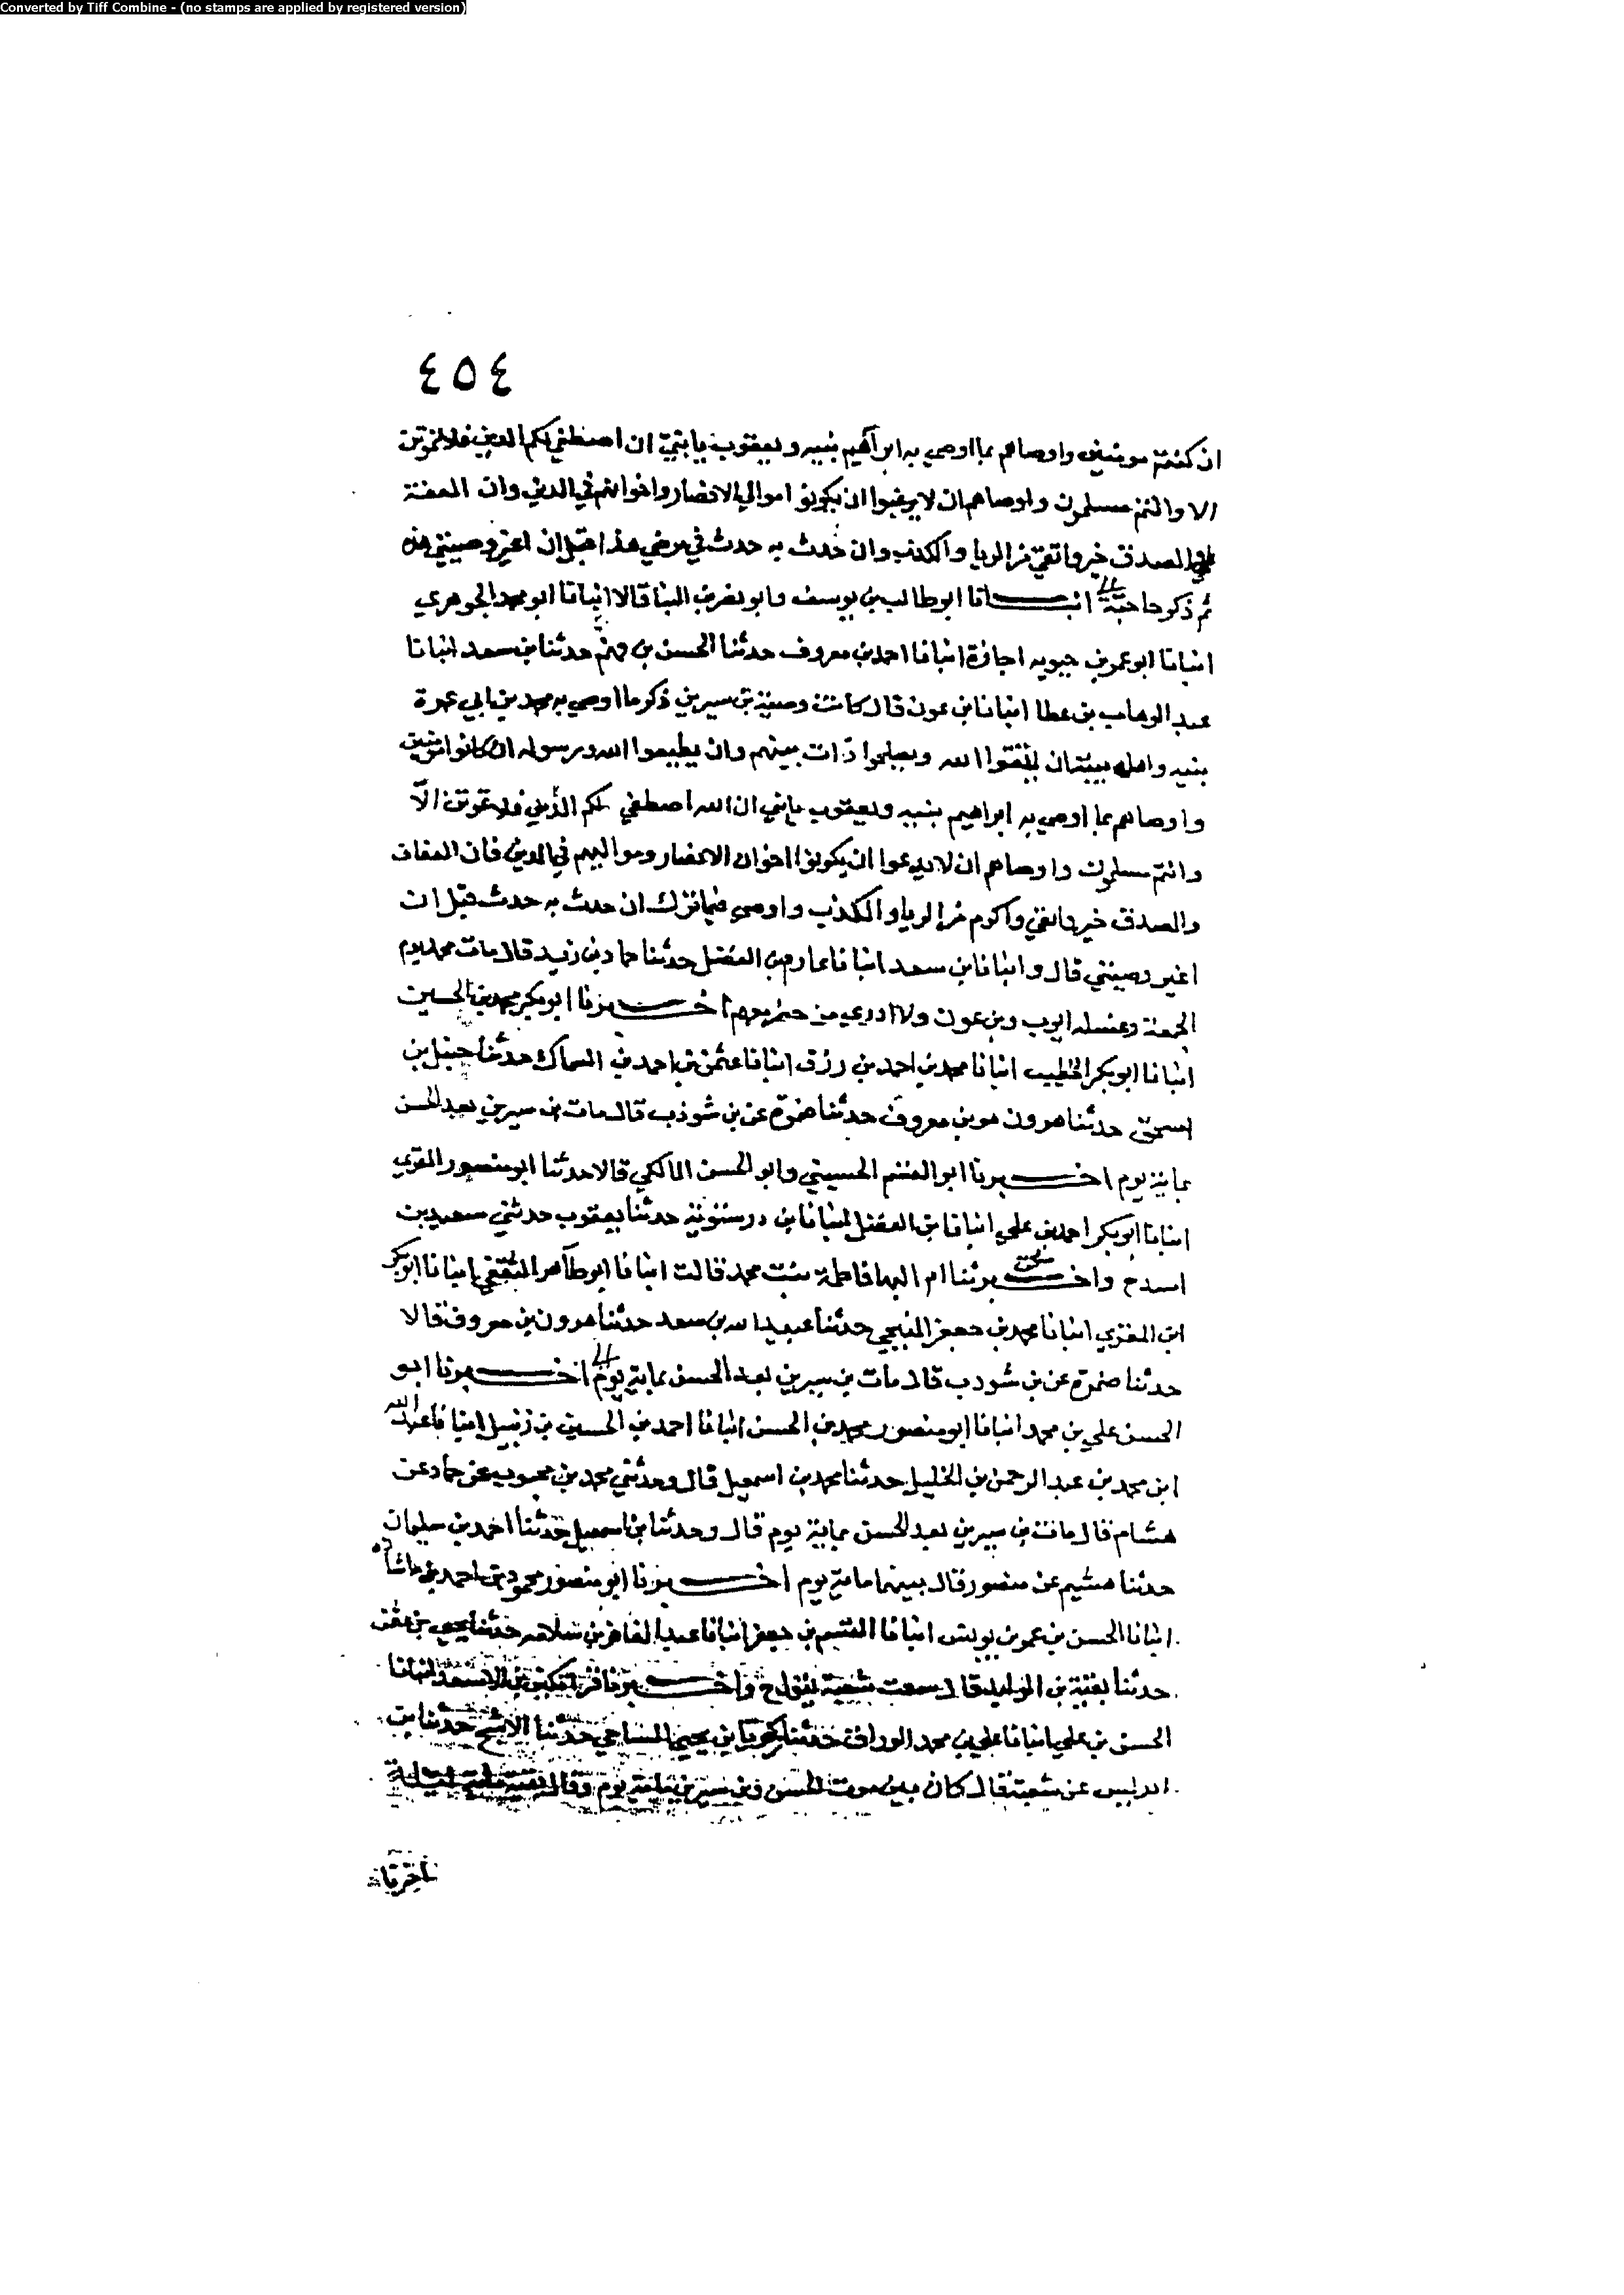 Converted by Tiff Combine - (no stamps are applied by registered version)
٤٥٤
ان كنتم مومنين واوصاهم بما اوصى به ابراهيم بنيه ويعقوب يا بني ان اصطفى لكم الدين فلا تموتن
الا وانتم مسلمون واوصاهم ان لا يرغبوا ان يكونوا موالي الانصار واخوانهم في الدين وان العفة
والصدق خير واتقى من الريا والكذب وان حدث به حدث في مرضي هذا قبل ان اغير وصيتي هذه
ثم ذكر حاجته انبانا ابو طالب بن يوسف وابو نصر بن البنا قالا انبانا ابو محمد الجوهري
انبانا ابو عمر بن حيويه اجازة انبانا احمد بن معروف حدثنا الحسن بن فهم حدثنا بن سعد انبانا
عبد الوهاب بن عطا انبانا بن عون قال كانت وصية بن سيرين ذكر ما اوصى به محمد بن ابي عمرة
بنيه واهله بيته ان يتقوا الله ويصلحوا ذات بينهم وان يطيعوا الله ورسوله ان كانوا مومنين
واوصاهم بما اوصى به ابراهيم بنيه ويعقوب يا بني ان الله اصطفى لكم الدين فلا تموتن الا
وانتم مسلمون واوصاهم ان لا يدعوا ان يكونوا اخوان الانصار ومواليهم في الدين فان العفاف
والصدق خير واتقى واكرم من الريا والكذب واوصى فيما ترك ان حدث به حدث قبل ان
اغير وصيتي قال وانبانا بن سعد انبانا عارم بن الفضل حدثنا حماد بن زيد قال مات محمد يوم
الجمعة وغسله ايوب وبن عون ولا ادري من حضر معهم اخبرنا ابو بكر محمد بن الحسين
انبانا ابو بكر الخطيب انبانا محمد بن احمد بن رزق انبانا عثمن بن احمد بن السماك حدثنا حنبل بن
اسحق حدثنا هرون هو بن معروف حدثنا ضمرة عن بن شوذب قال مات بن سيرين بعد الحسن
بماية يوم اخبرنا ابو الغنئم الحسيني وابو الحسن المالكي قالا حدثنا ابو منصور المقري
انبانا ابو بكر احمد بن علي انبانا بن الفضل انبانا بن درستويه حدثنا يعقوب حدثني سعيد بن
اسد ح واخبرتنا ام البها فاطمة بنت محمد قالت انبانا ابو طاهر الثقفي انبانا ابو بكر
ابن المقري انبانا محمد بن جعفر المنبجي حدثنا عبيد الله بن سعد حدثنا هرون بن معروف قالا
حدثنا ضمرة عن بن شودب قال مات بن سيرين بعد الحسن بماية يوم اخبرنا ابو
الحسن علي بن محمد انبانا ابو منصور محمد بن الحسن انبانا احمد بن الحسين بن زنبيل انبانا عبد الله
ابن محمد بن عبد الرحمن بن الخليل حدثنا محمد بن اسمعيل قال وحدثني محمد بن محبوب عن حماد عن
هشام قال مات بن سيرين بعد الحسن بماية يوم قال وحدثنا بن اسمعيل حدثنا احمد بن سليمان
حدثنا هشيم عن منصور قال بينهما ماية يوم اخبرنا ابو منصور محمود بن احمد بن ماشاده
انبانا الحسن بن عمر بن يونس انبانا القسم بن جعفر انبانا عبد الغافر بن سلامه حدثنا يحيى بن عثمن
حدثنا بقية بن الوليد قال سمعت شعبة يقول ح واخبرنا قراتكين بن الاسعد انبانا
الحسن بن علي انبانا علي بن محمد الوراق حدثنا زكريا بن يحيى الساجي حدثنا الاشج حدثنا بن
ادريس عن شعبة قال كان بين موت الحسن وبن سيرين ماية يوم وقال بقية ماية ليلة
اخبرنا